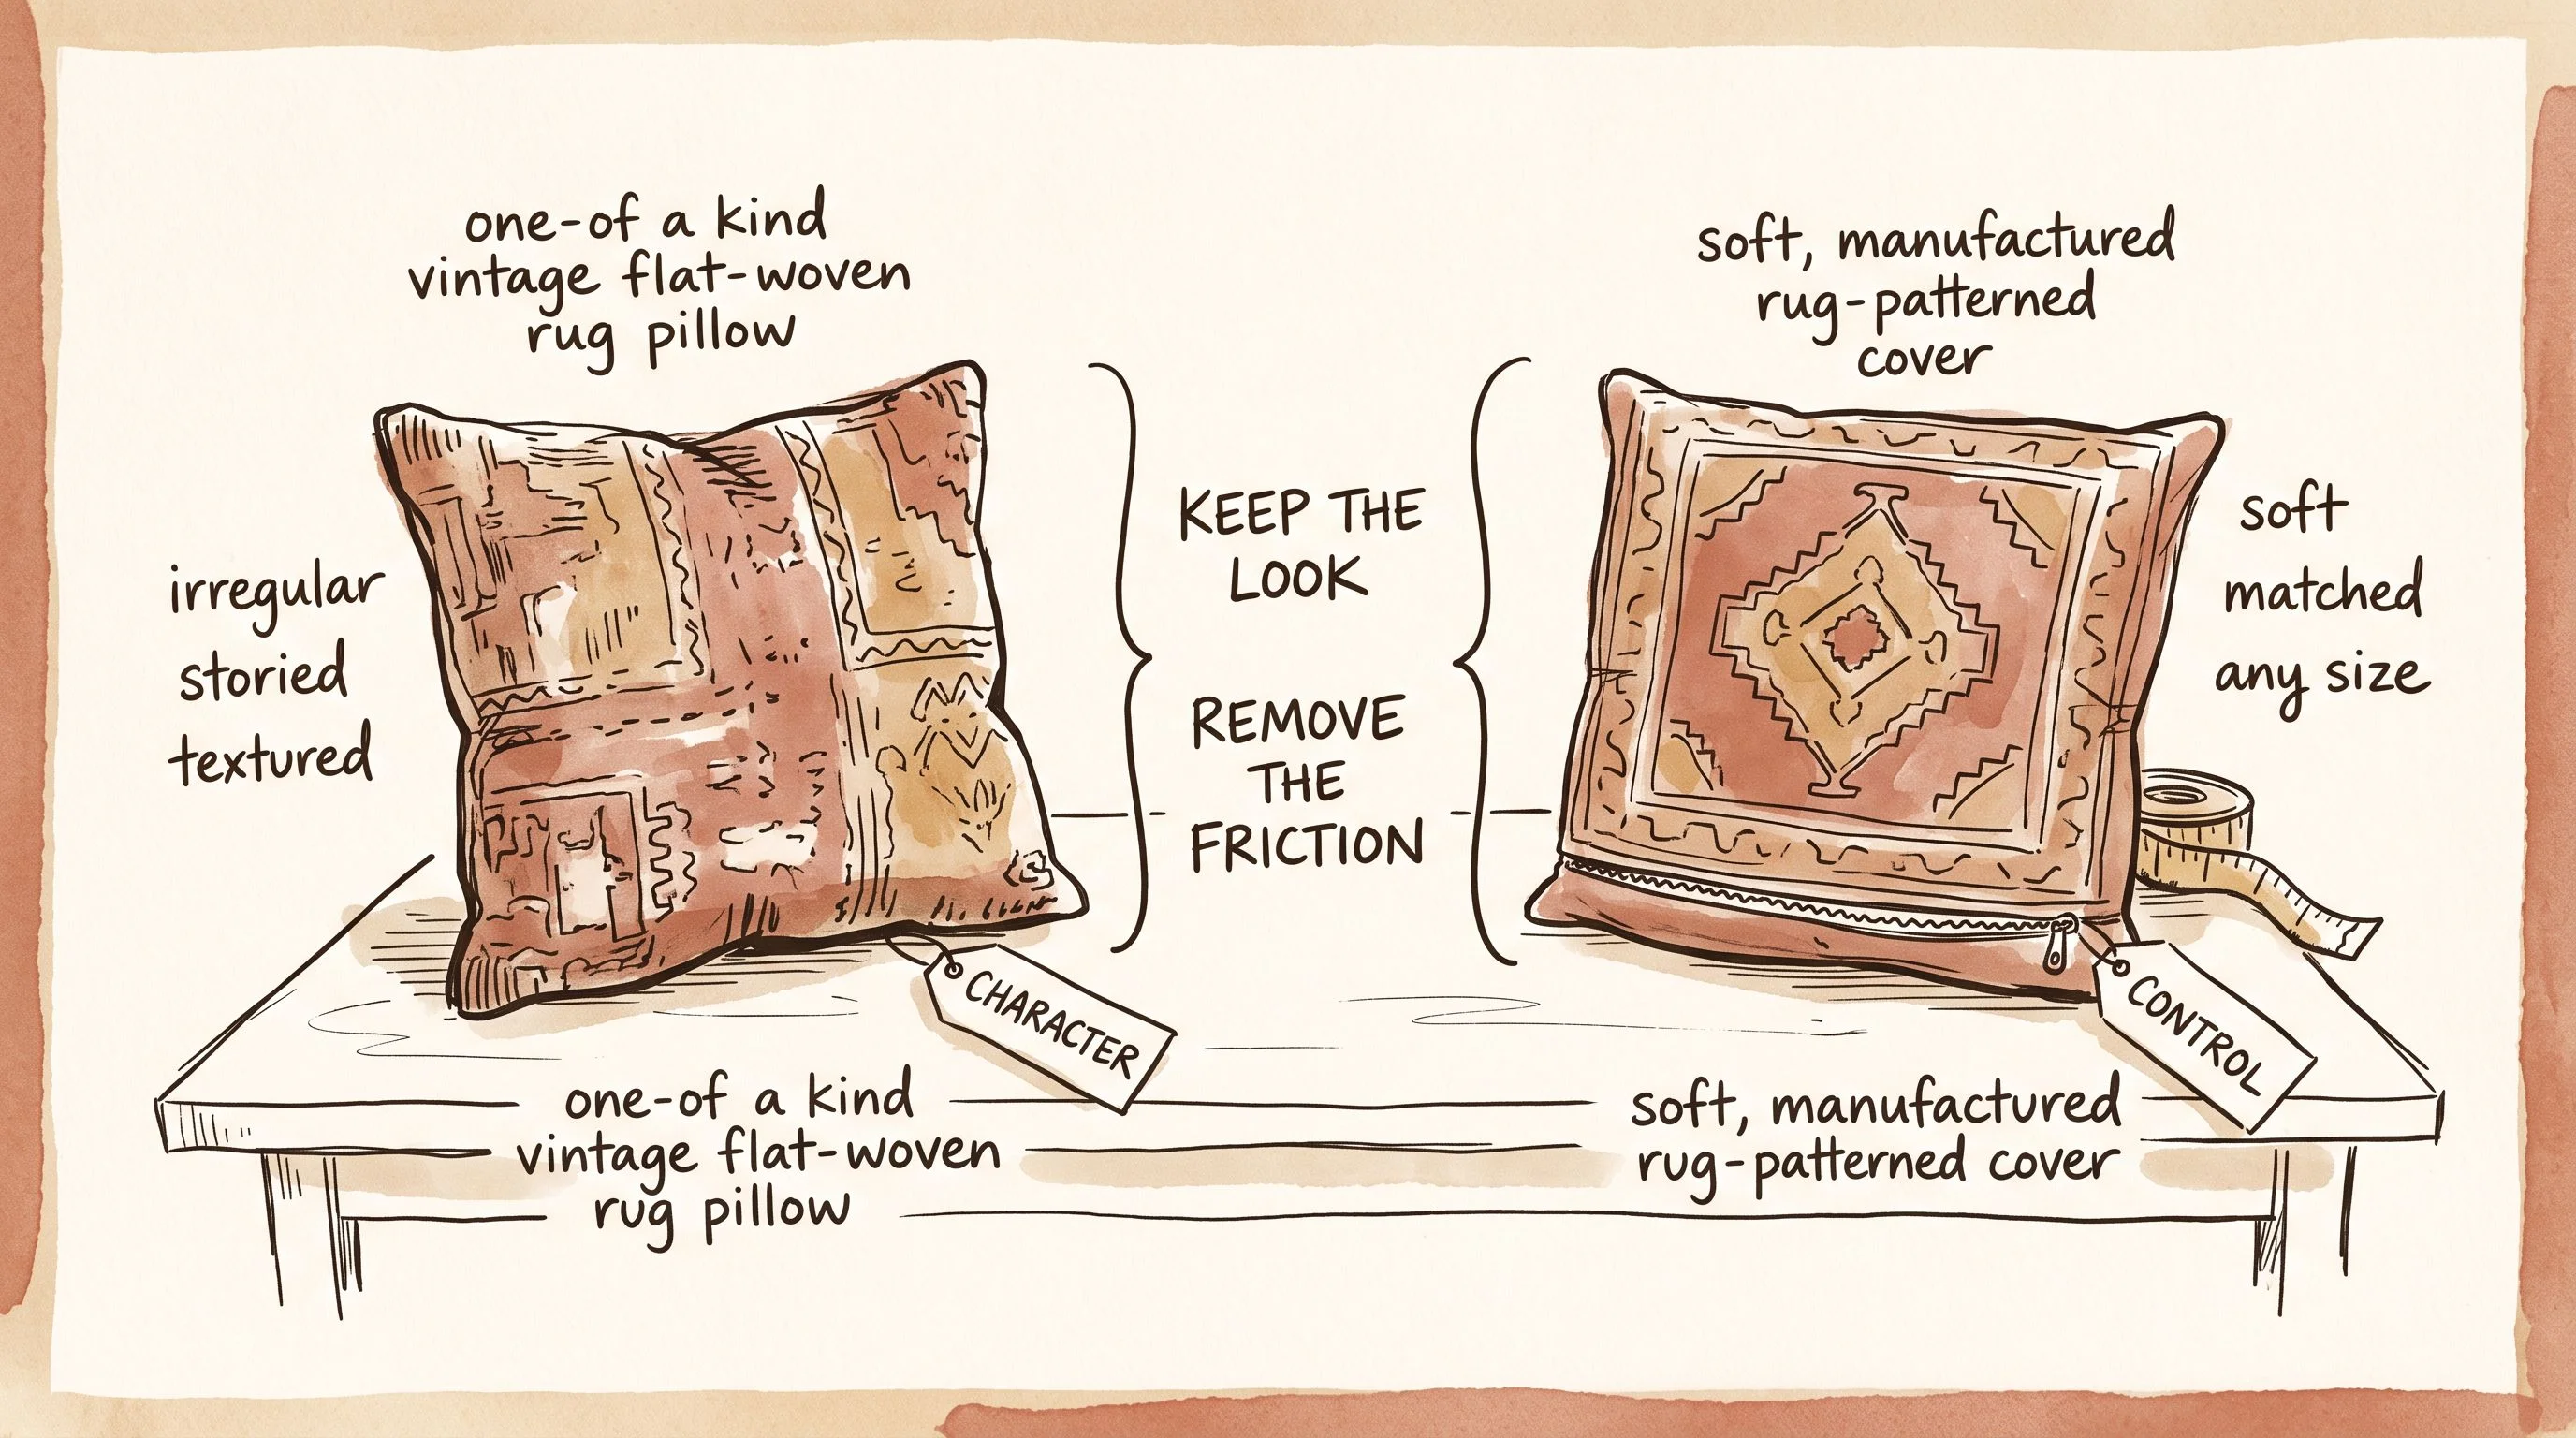 one-of a kind
vintage flat-woven
rug pillow
soft, manufactured
rug-patterned
cover
irregular
storied
textured
KEEP THE
LOOK
REMOVE
THE
FRICTION
soft
matched
any size
CHARACTER
CONTROL
one-of a kind
vintage flat-woven
rug pillow
soft, manufactured
rug-patterned cover